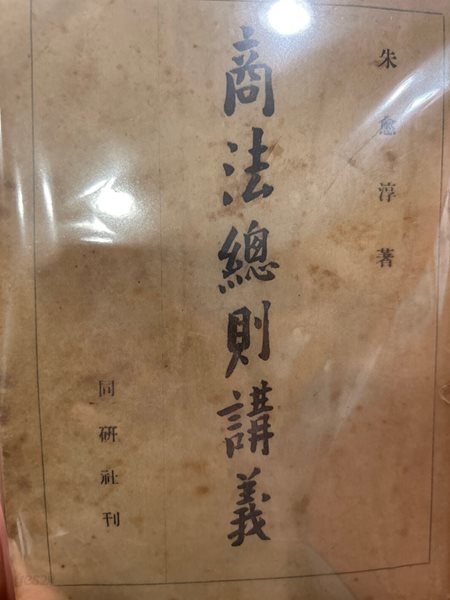 朱愈淳著
商法總則講義
同研社刊